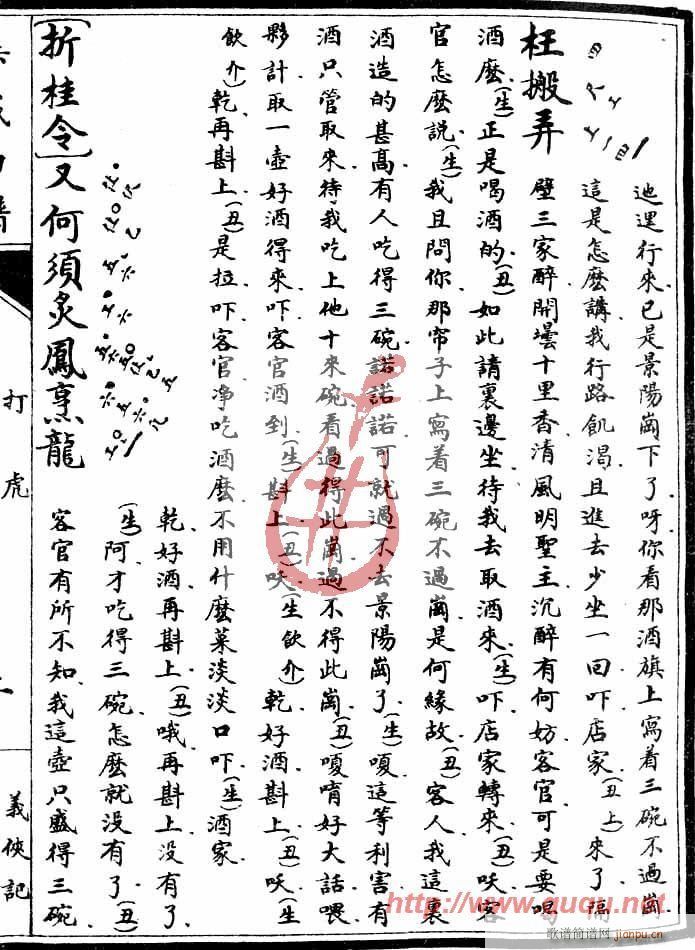 枉搬弄
迤逞行來已是景陽崗下了呀你看那酒旗上寫着三碗不過崗
這是怎麼講我行路飢渴且進去少坐一回吓店家(丑上)來了隔
壁三家醉開壜十里香清風明聖主沉醉有何妨客官可是要喝
酒麼(生)正是喝酒的(丑)如此請裏邊坐待我去取酒來(生)吓店家轉來(丑)呋客
官怎麼說(生)我且問你那帘子上寫着三碗不過崗是何緣故(丑)客人我這裏
酒造的甚高有人吃得三碗諾諾諾可就過不去景陽崗了(生)嗄這等利害有
酒只管取來待我吃上他十來碗看過得此崗過不得此崗(丑)嗄唷好大話喂
夥計取一壺好酒得來吓客官酒到(生)斟上(丑)呋(生飲介)乾好酒斟上(丑)呋(生
飲介)乾再斟上(丑)是拉吓客官净吃酒麼不用什麼菜淡淡口吓(生)酒家
[折桂令]又何須炙鳳烹龍
乾好酒再斟上(丑)哦再斟上没有了
(生)阿才吃得三碗怎麼就没有了(丑)
客官有所不知我這壺只盛得三碗
打虎
義俠記
http://www.guqu.net
歌谱简谱网
jianpu.cn